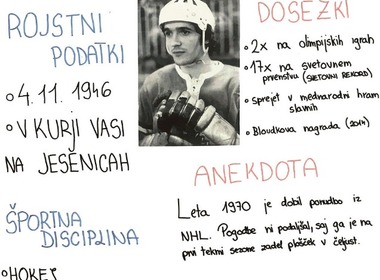 ROJSTNI
PODATKI
4.11.1946
V KURJI VASI
NA JESENICAH
ŠPORTNA
DISCIPLINA
HOKEJ
DOSEŽKI
2x na olimpijskih igrah
17x na svetovnem
prvenstvu (SVETOVNI REKORD)
sprejet v mednarodni hram
slavnih
Bloudkova nagrada (2014)
ANEKDOTA
Leta 1970 je dobil ponudbo iz
NHL. Pogodbe ni podaljšal, saj ga je na
prvi tekmi sezone zadel plošček v čeljust.